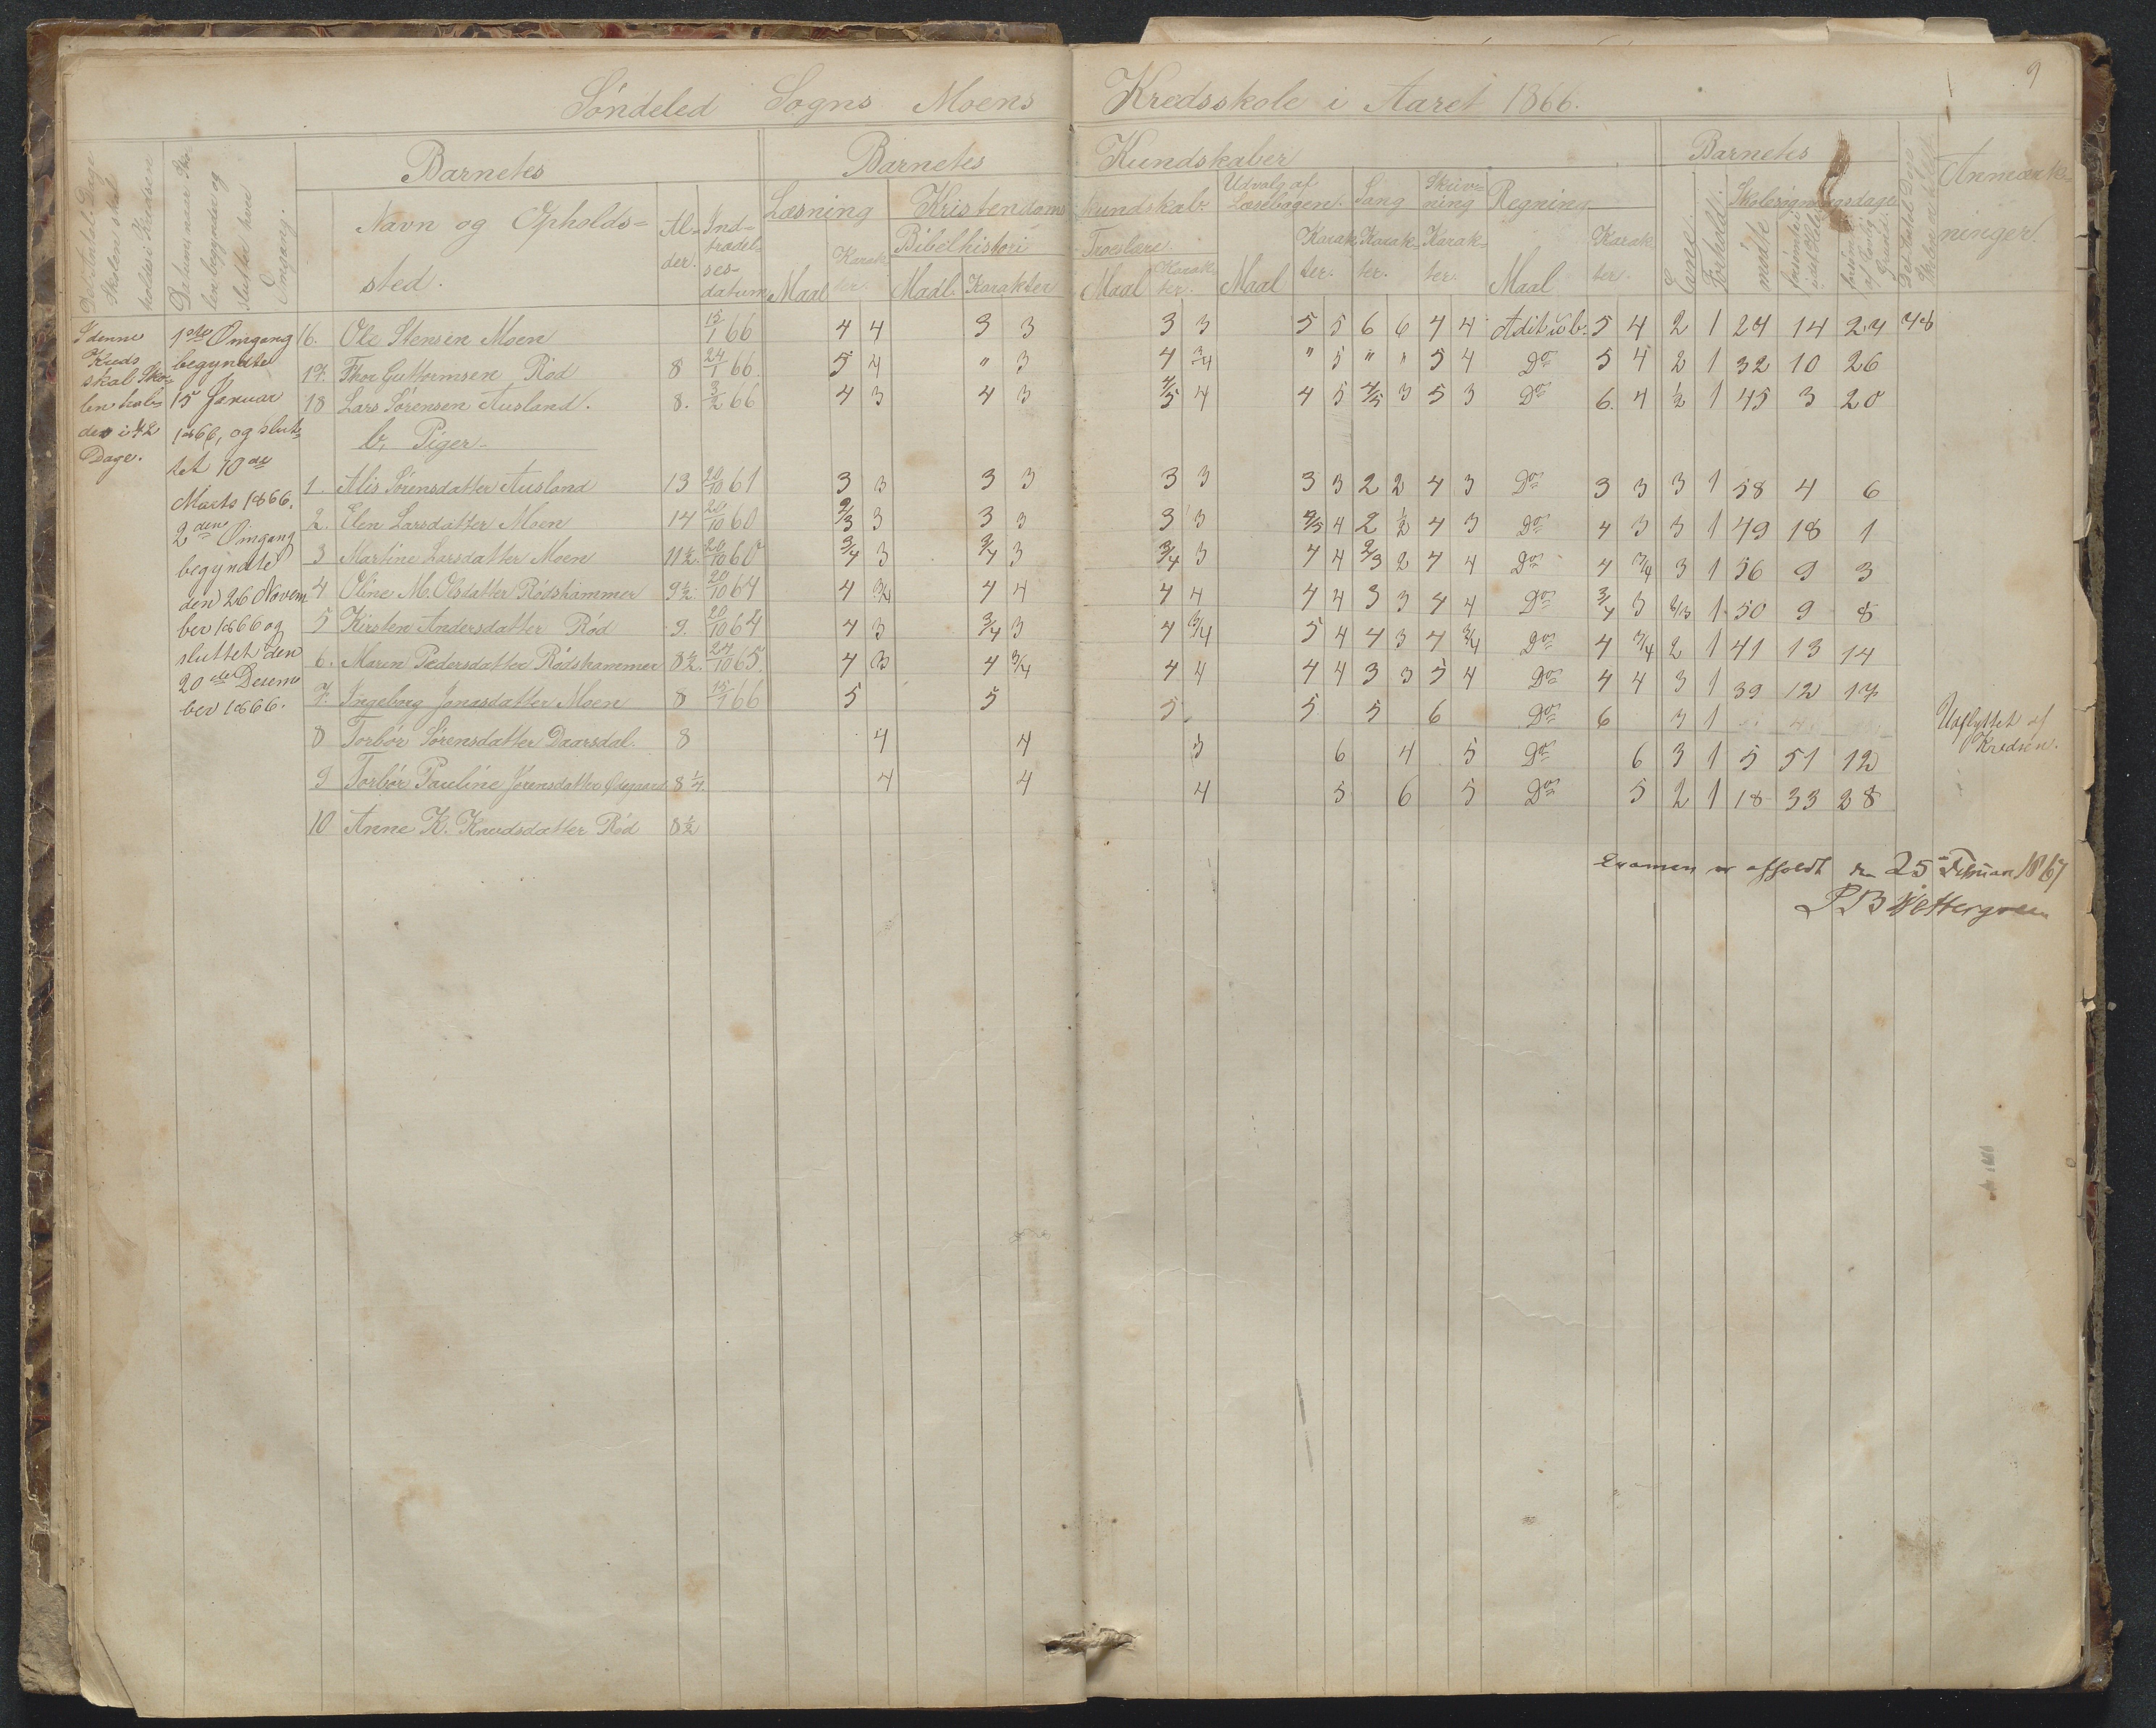 9
Søndeled Sogns Moens Kredsskole i Aaret 1866.
Det Antal Dage Skolen skal holdes i Kredsen
Datum naar Skolen begynder og slutter hver Omgang.
Barnets
Navn og Opholds=
sted.
Al=
der.
Ind=
trædel=
ses=
datum
Barnets Kundskaber
Læsning
Maal
Karak
ter.
Kristendoms kundskab.
Bibelhistori
Maal Karakter
Troeslære
Maal Karak
ter.
Udvalg af
Læsebogen.
Maal
Karak
ter.
Sang
Karak
ter.
Skriv=
ning
Karak=
ter.
Regning
Maal
Karak
ter.
Barnets
Evne.
Forhold.
Skolesøgningsdage
mødte
forsømte i det Hele
forsømte af lovlig Grund.
Det Antal Dage Skolen er holdt
Anmærk=
ninger.
I denne
Kreds
skal Sko=
len hol=
des i 72
Dage.
1ste Omgang
begyndte
15 Januar
1866, og slut=
tet 10de
Marts 1866.
2den Omgang
begyndte
den 26 Novem
ber 1866 og
sluttet den
20de Desem
ber 1866.
16. Ole Stensen Moen 15/1 66 4 4 3 3 3 3 5 5 6 6 4 4 Adit i ub. 5 4 2 1 24 14 24 48
17. Thor Guttormsen Rød 8 24/1 66. 5 4 " 3 4 3/4 " 5 " " 5 4 Do 5 4 2 1 32 10 26
18 Lars Sørensen Ausland. 8. 3/2 66 4 3 4 3 4/5 4 4 5 4/5 3 5 3 Do 6. 4 1/2 1 45 3 20
b, Piger
1. Alis Sørensdatter Ausland 13 20/10 61 3 3 3 3 3 3 3 3 2 2 4 3 Do 3 3 3 1 58 4 6
2. Elen Larsdatter Moen 14 20/10 60 2/3 3 3 3 3 3 4/5 4 2 1/2 4 3 Do 4 3 3 1 49 18 1
3 Martine Larsdatter Moen 11 1/2. 20/10 60 3/4 3 3/4 3 3/4 3 4 4 2/3 2 4 4 Do 4 3/4 3 1 56 9 3
4 Oline M. Olsdatter Rødshammer 9 1/2. 20/10 64 4 3/4 4 4 4 4 4 4 3 3 4 4 Do 3/4 3 2/3 1 50 9 8
5 Kirsten Andersdatter Rød 9. 20/10 64 4 3 3/4 3 4 3/4 5 4 4 3 4 3/4 Do 4 3/4 2 1 41 13 14
6. Maren Pedersdatter Rødshammer 8 1/2. 24/10 65. 4 3 4 3/4 4 4 4 4 3 3 5 4 Do 4 4 3 1 39 12 17
7. Ingebørg Jonasdatter Moen 8 15/1 66 5 5 5. 5 5 6 Do 6 3 1 Udflyttet af
Kredsen.
8 Torbør Sørensdatter Daarsdal. 8 4 4 3 6 4 5 Do 6 3 1 5 51 12
9 Torbør Pauline Jørensdatter Øsegaard 8 1/4 4 4 4 5 6 5 Do 5 2 1 18 33 28
10 Anne K. Knudsdatter Rød 8 1/2
Examen er afholdt den 25 Februar 1867
P B Wettergreen